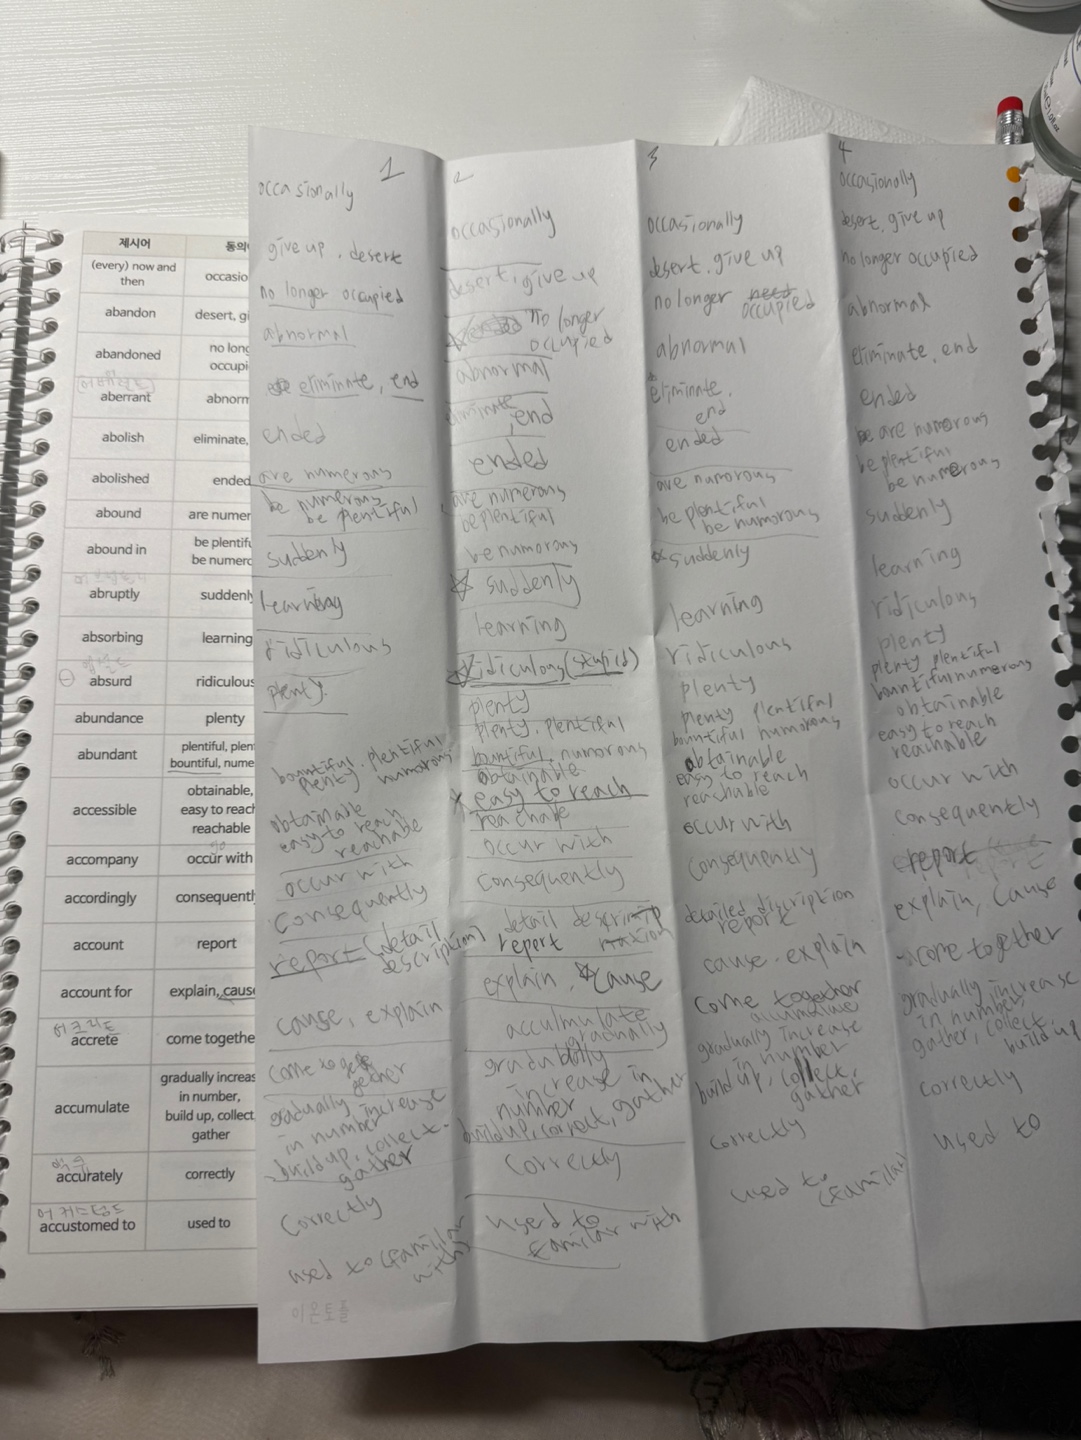 제시어
동의
(every) now and
then
occasio
abandon
desert, gi
abandoned
no long
occupi
aberrant
abnorm
abolish
eliminate,
abolished
ended
abound
are numer
abound in
be plentifu
be numero
abruptly
suddenly
absorbing
learning
absurd
ridiculous
abundance
plenty
abundant
plentiful, plen
bountiful, nume
accessible
obtainable,
easy to reach
reachable
accompany
go
occur with
accordingly
consequentl
account
report
account for
explain, cause
어크리트
accrete
come togethe
accumulate
gradually increas
in number,
build up, collect,
gather
accurately
correctly
어커스텀드
accustomed to
used to
1
occasionally
give up, desert
no longer occupied
abnormal
eliminate, end
ended
are numerous
be numerous
be plentiful
suddenly
learning
ridiculous
plenty
bountiful, plentiful
plenty, numorous
obtainable
easy to reach
reachable
occur with
Consequently
report (detail
description)
cause, explain
come to
gether
gradually increase
in number
build up, collect.
gather
Correctly
used to (familar
with)
이온토플
2
occasionally
desert, give up
no longer
occupied
abnormal
eliminate
, end
ended
are numerous
be plentiful
be numorous
☆ suddenly
learning
ridiculous (stupid)
plenty
plenty, plentiful
bountiful, numorous
obtainable
easy to reach
reachable
occur with
Consequently
detail
report
explain, ☆cause
acculmulate
gradually
increase in
number
build up, correct, gather
Correctly
used to
familar with
3
occasionally
desert, give up
no longer need
occupied
abnormal
eliminate,
end
ended
are numorous
be plentiful
be numorous
suddenly
learning
ridiculous
plenty
plenty plentiful
bountiful numorous
obtainable
easy to reach
reachable
occur with
Consequently
detailed discription
report
cause, explain
Come together
gradually increase
in number
build up, collect,
gather
Correctly
used to
(familar)
4
occasionally
desert, give up
no longer occupied
abnormal
eliminate, end
ended
be are numorous
be plentiful
be numerous
suddenly
learning
ridiculous
plenty
plenty plentiful
bountiful numorous
obtainable
easy to reach
reachable
occur with
Consequently
report
explain, Cause
come together
gradually increase
in number,
gather, collect,
build up
Correctly
used to